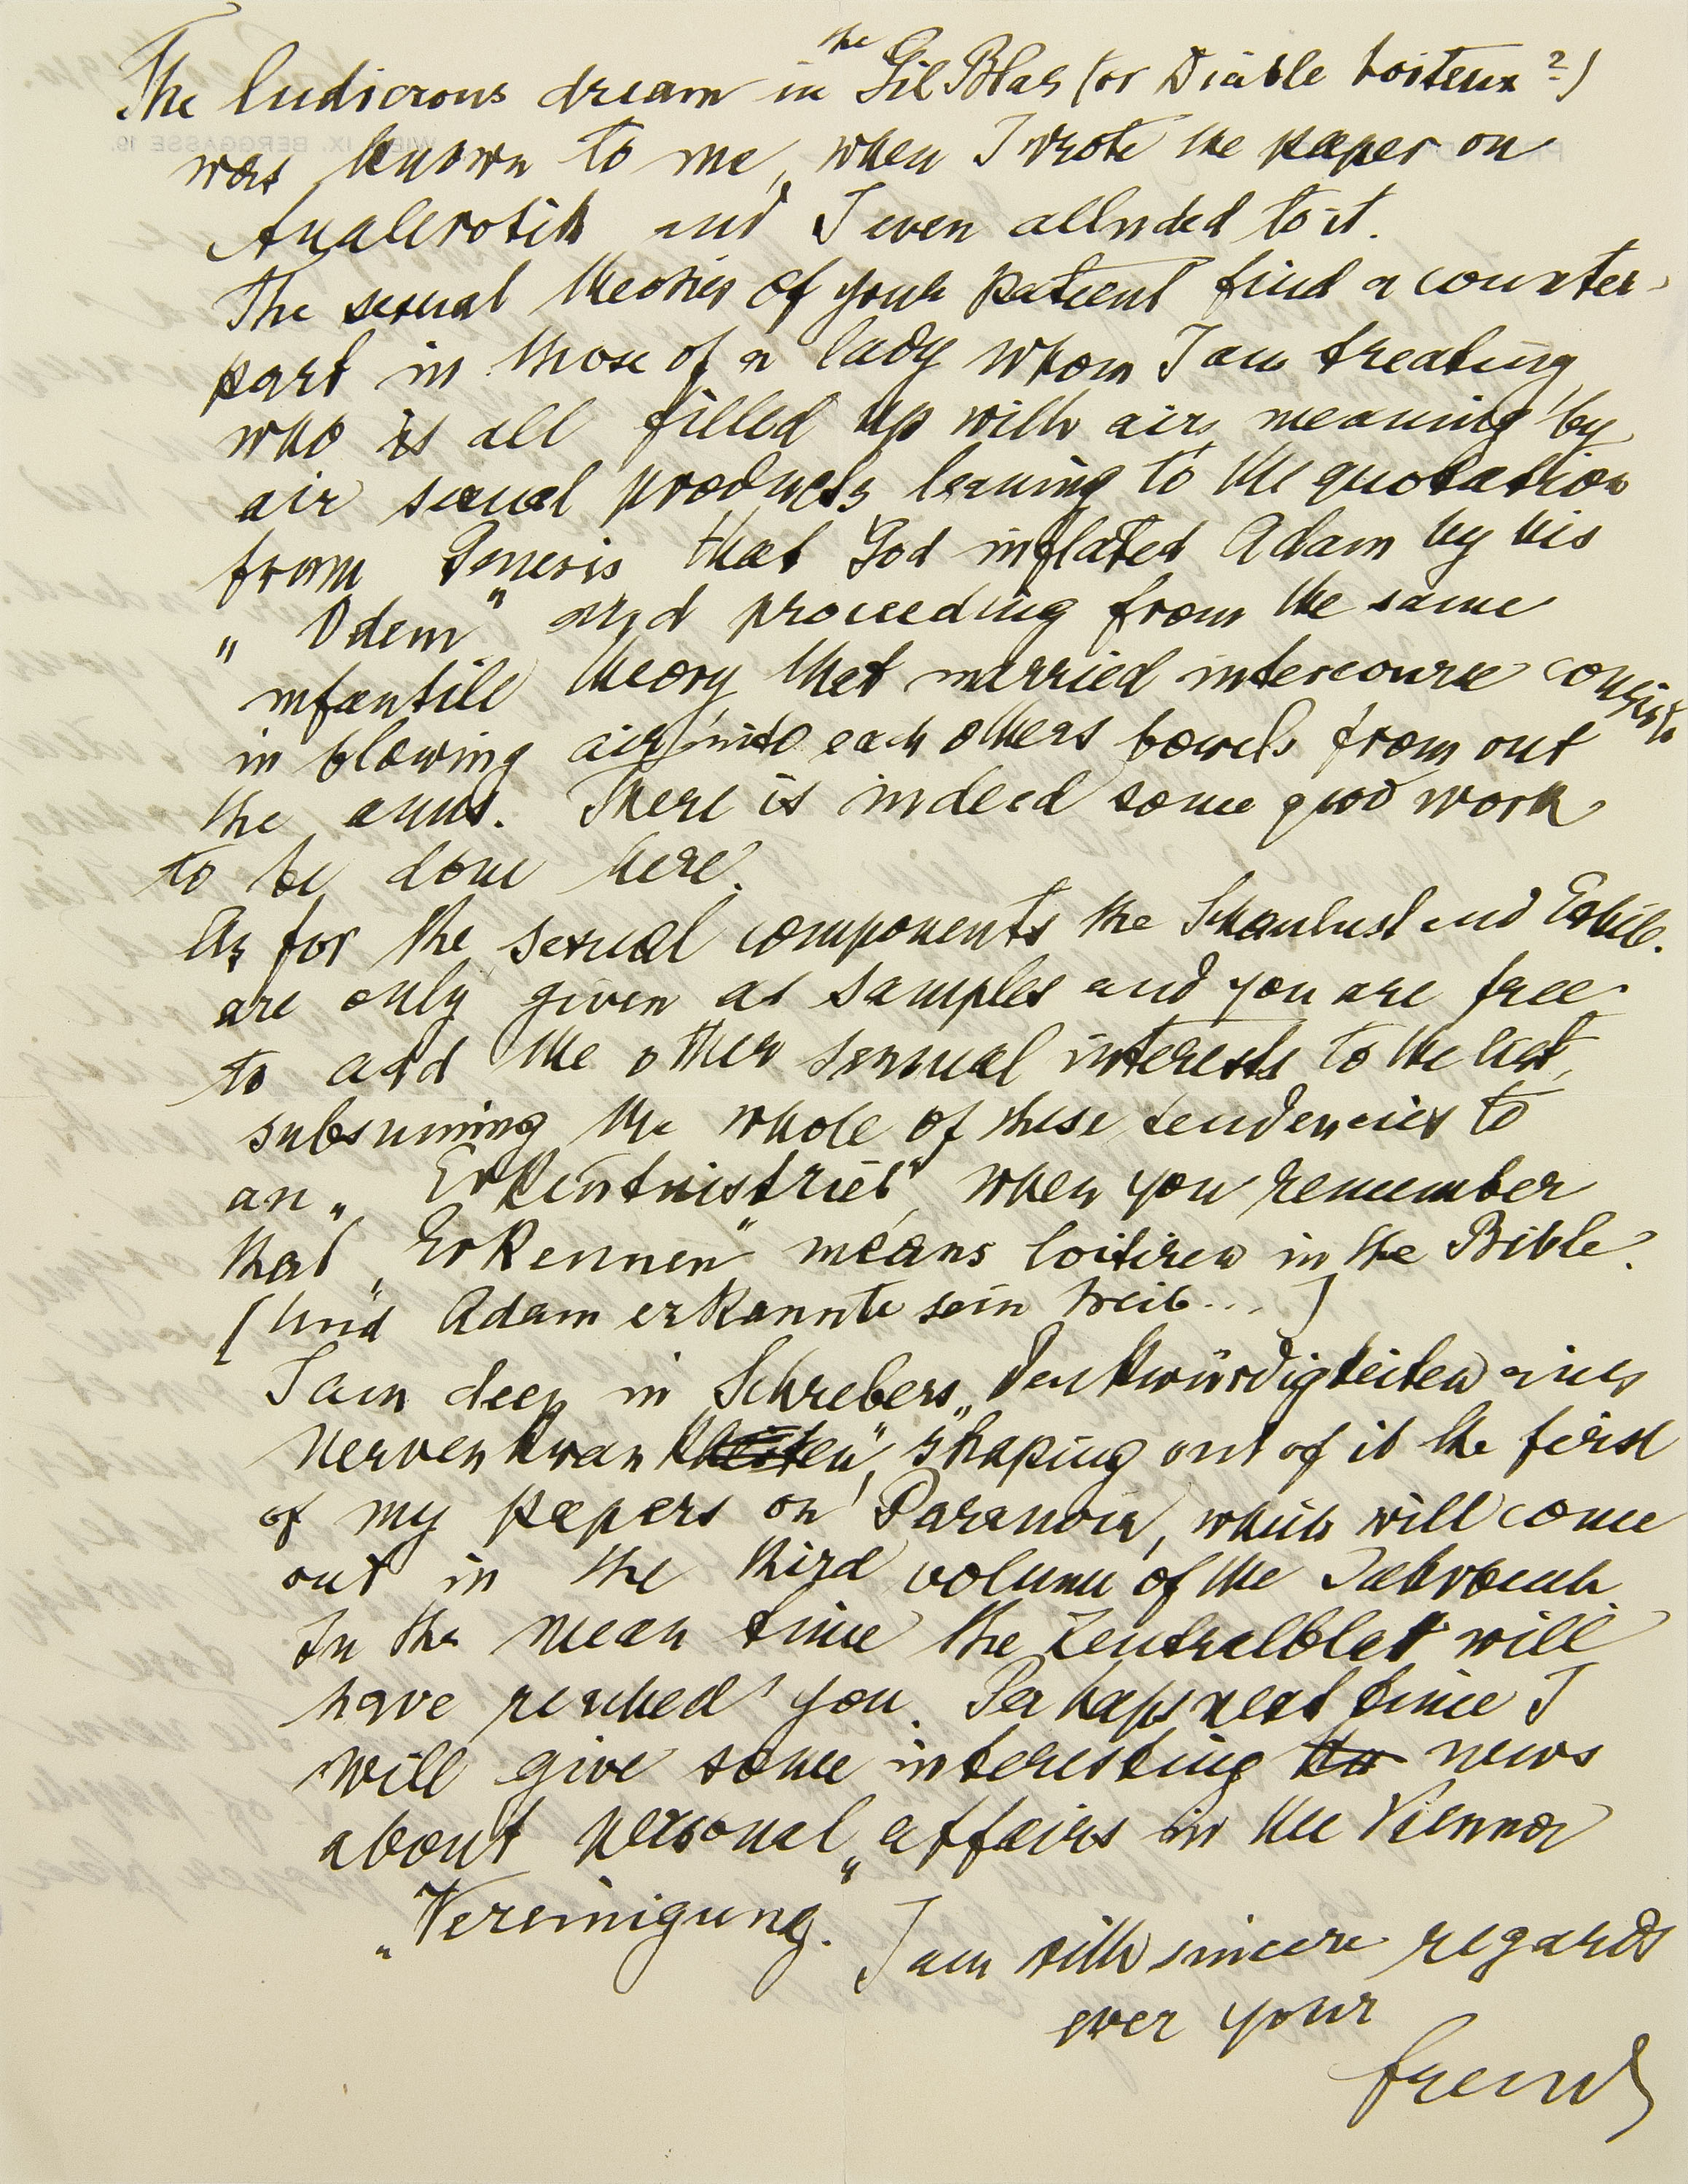 The ludicrous dream in the Gil Blas (or Diable boiteux?)
was known to me, when I wrote the paper on
Analerotik and I even alluded to it.
The sexual theories of your patient find a counter-
part in those of a lady whom I am treating
who is all filled up with air, meaning by
air sexual products, leaning to the quotation
from Genesis that God inflated Adam by his
„Odem" and proceeding from the same
infantile theory that married intercourse consists
in blowing air into each others bowels from out
the anus. There is indeed some good work
to be done here.
As for the sexual components the Schaulust and Exhib.
are only given as samples and you are free
to add the other sensual interests to the list,
subsuming the whole of these tendencies to
an „Erkentnistrieb" when you remember
that „Erkennen" means coitiren in the Bible.
[Und Adam erkannte sein Weib...]
I am deep in Schrebers „Denkwürdigkeiten eines
Nervenkranken", shaping out of it the first
of my papers on Paranoia, which will come
out in the third volume of the Jahrbuch.
In the mean time the Zentralblatt will
have reached you. Perhaps next time I
will give some interesting news
about personal affairs in the Vienna
„Vereinigung".
I am with sincere regards
ever your
Freud
WIEN, IX. BERGGASSE 19.